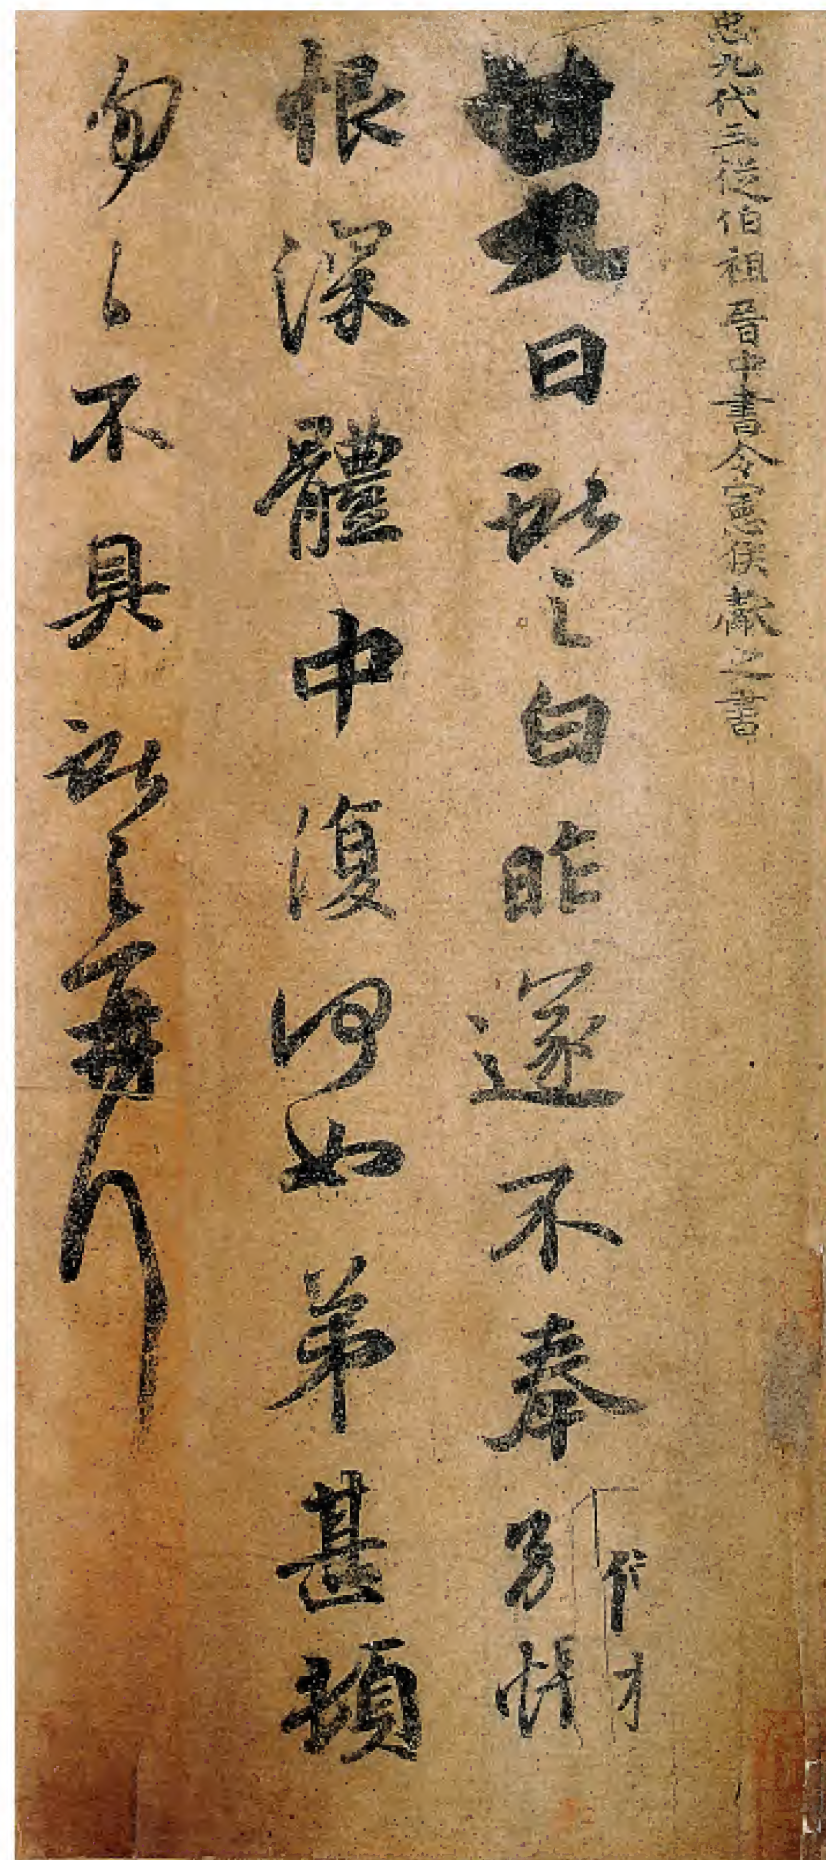 忠九代三從伯祖晉中書令憲侯獻之書
廿九日獻之白昨遂不奉別悵
恨深體中復何如弟甚頓
匆〻不具獻之再拜